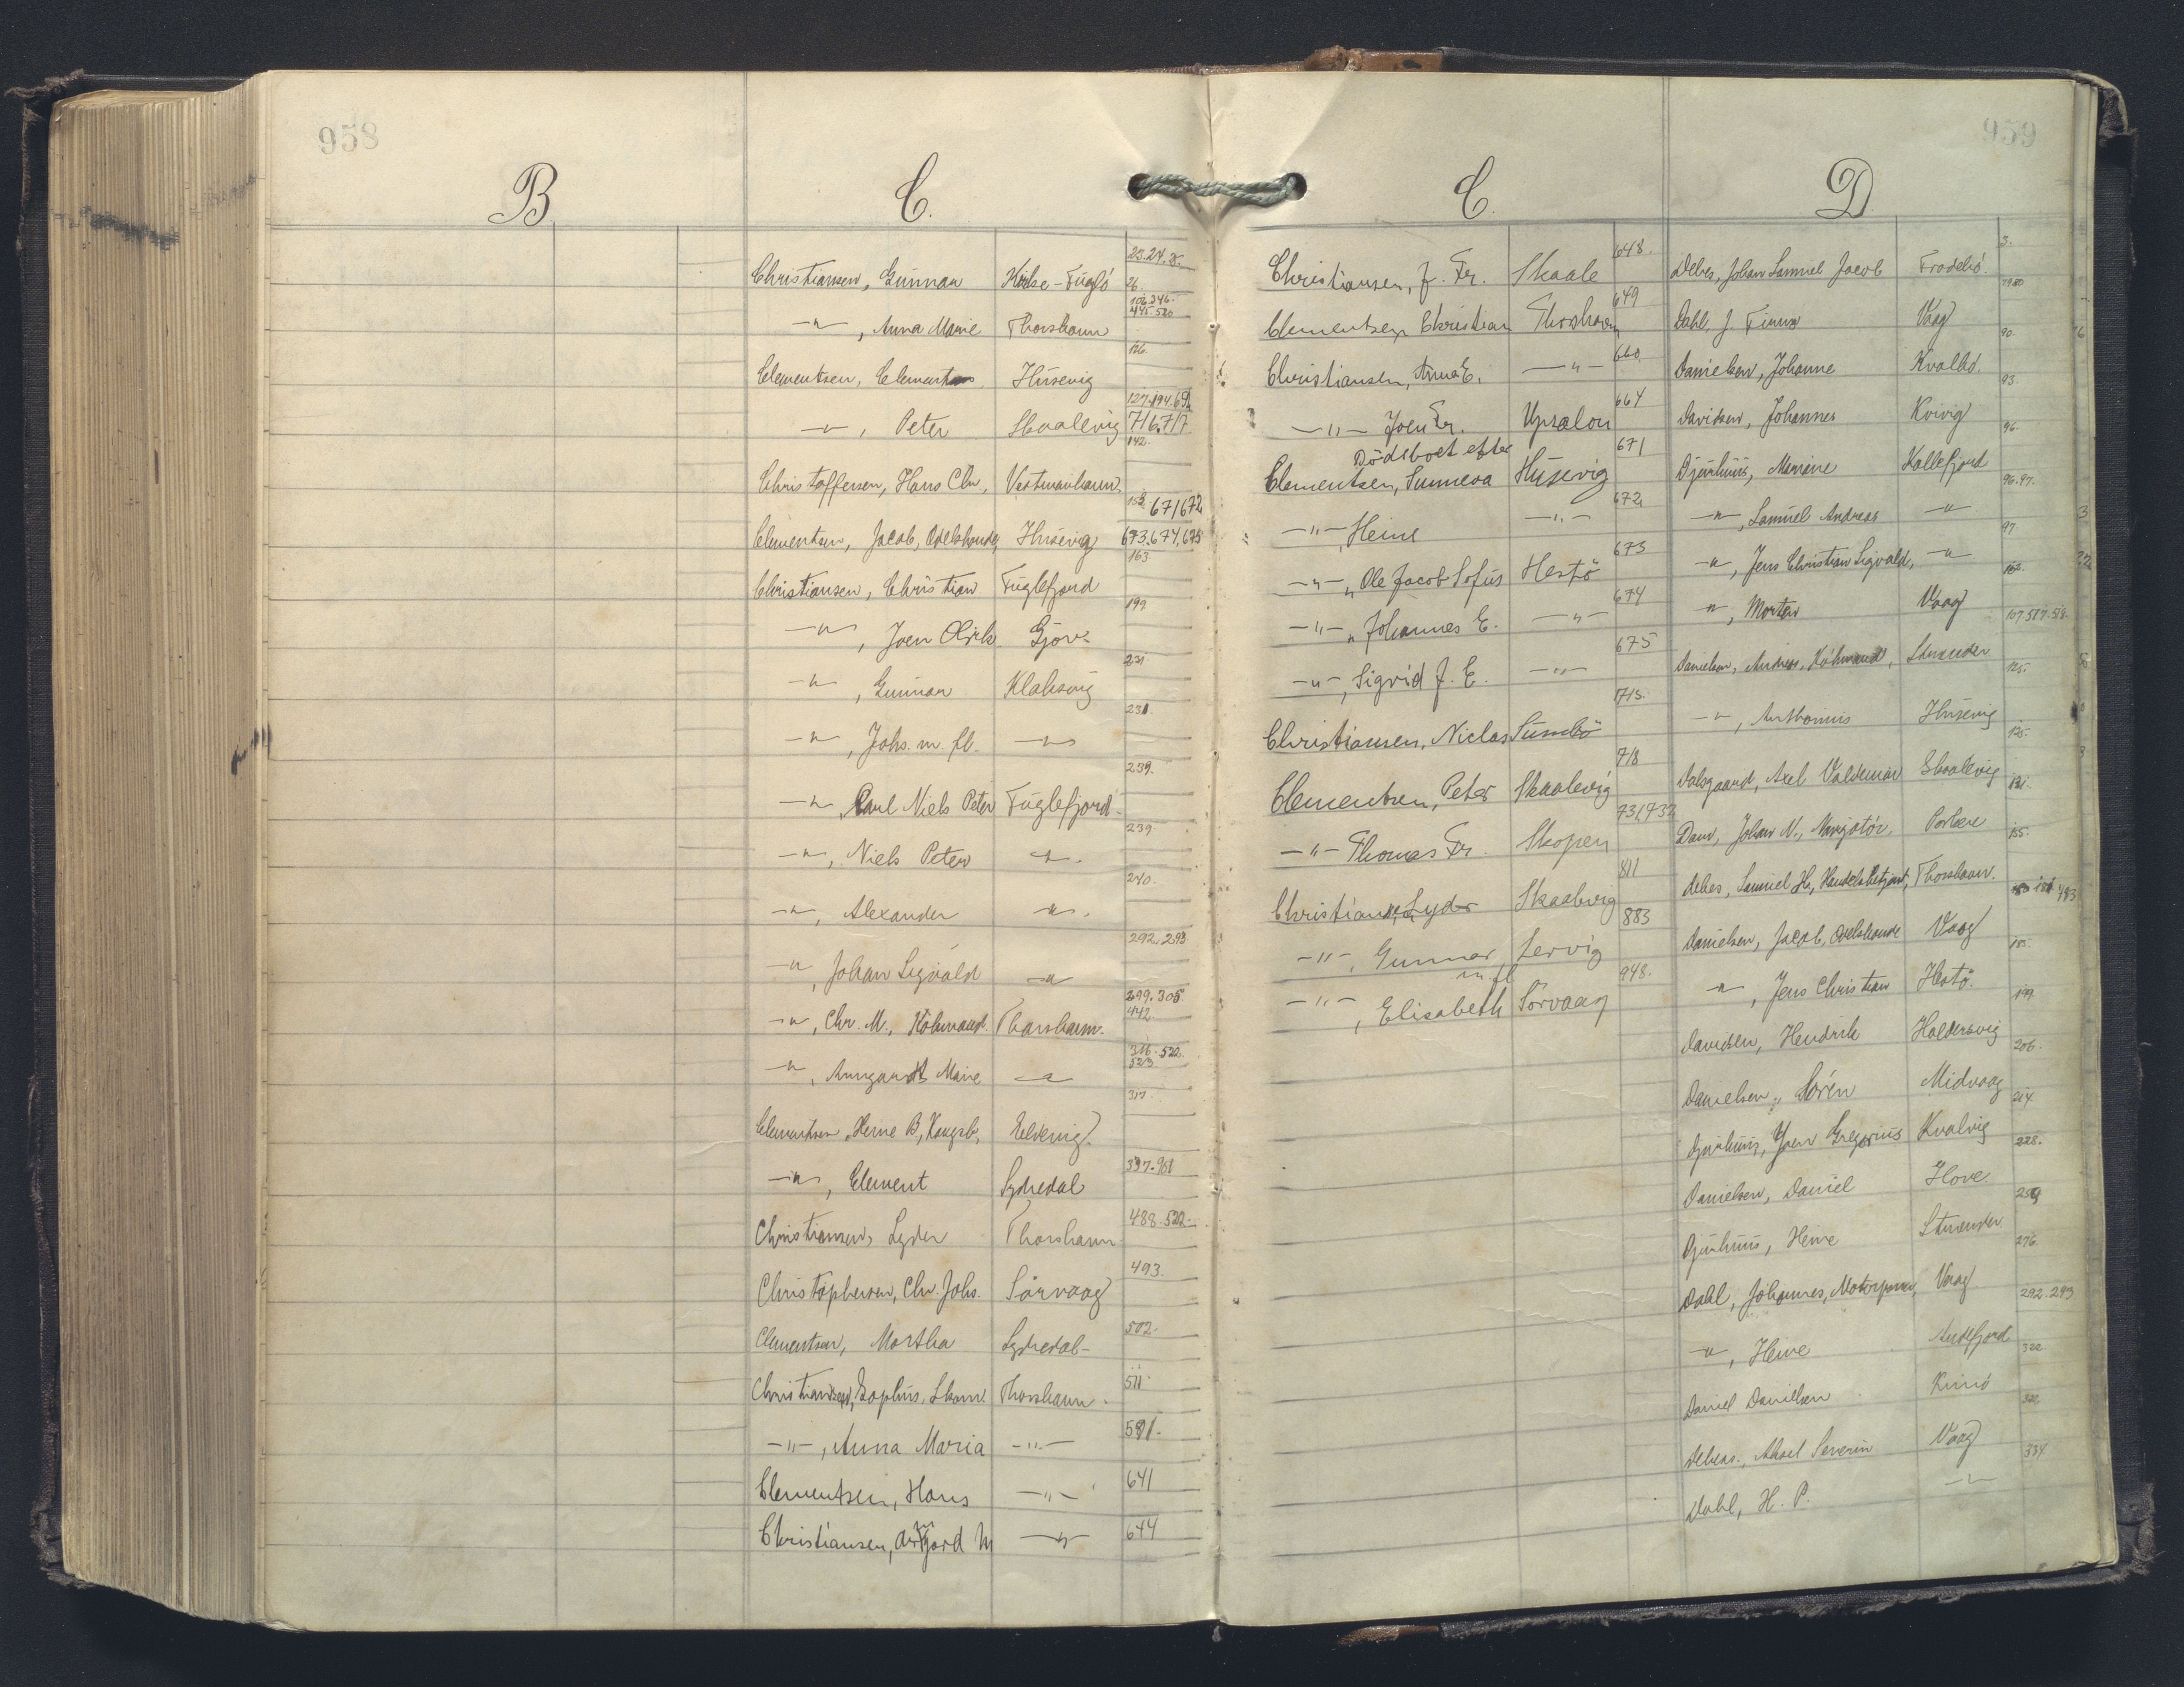 958
B
C.
23.24.25.
Christiansen, Gunnar Kirke-Fuglö 26.
106.346.
445.520
-"-, Anna Marie Thorshavn
126.
Clementsen, Clement Husevig
127.194.69
-"-, Peter Skaalevig 716.717
142.
Christoffersen, Hans Chr., Vestmanhavn.
153. 671 672
Clementsen, Jacob, Odelsbonde, Husevig 673.674.675
163
Christiansen, Christian Fuglefjord
199.
-"-, Joen Olrik Gjov.
231.
-"-, Gunnar Klaksvig
231.
-"-, Johs. m. fl. -"-
239.
-"-, Carl Niels Peter Fuglefjord
239.
-"-, Niels Peter -"-
240.
-"-, Alexander -"-
292.293
-"-, Johan Sigvald -"-
299.305
-"-, Chr. M.,Köbmand. Thorshavn. 442.
316.522.
523
-"-, Marie -"-
317.
Clementsen, Heine B., Kongsb., Eldevig.
397.
-"-, Clement Sydredal
488.522.
Christiansen, Lyder Thorshavn
493.
Christophersen, Chr. Johs. Sörvaag
502.
Clementsen, Martha Sydredal
511.
Christiansen, Sophus, Thorshavn.
-"-, Anna Maria -"- 591.
Clementsen, Hans -"- 641
Christiansen, M -"- 644
959
C.
648.
Christiansen, J. Fr. Skaale
649
Clementsen Christian Thorshavn
660
Christiansen, Anna E. -"-
664
-"- Joen Fr. Upsalon
Dödsboet efter 671
Clementsen, Sunneva Husevig
672
-"-, Heine -"-
673
-"-, Ole Jacob Sofus Hestö
674
-"-, Johannes E. -"-
675
-"-, Sigrid J. E. -"-
715.
Christiansen, Niclas Sumbö
718
Clementsen, Peter Skaalevig
731,732
-"- Thomas Fr. Skopen
811
Christiansen, Lyder Skaalevig
883
-"-, Gunnar Lervig
m fl 948.
-"-, Elisabeth Sörvaag
D
3.
Debes, Johan Samuel Jacob Frodebö.
Dahl, J. Finnur Vaag
90.
Danielsen, Johanne Kvalbö.
93
Davidsen, Johannes Kvivig
96.
Djurhuus, Marine Kollefjord
96.97.
-"-, Samuel Andreas -"-
97
-"-, Jens Christian Sigvald, -"-
102.
-"-, Morten Vaag
107.517.518.
Danielsen, Andreas, Köbmand, Strender
125.
-"-, Anthonius Husevig
125.
Dalsgaard, Axel Valdemar Skaalevig
131.
Dam, Johan N., Navigatör, Porkere
155.
Debes, Samuel H., Handelsbetjent, Thorshavn.
Danielsen, Jacob, Odelsbonde Vaag
-"-, Jens Christian Hestö.
199.
Davidsen, Hendrik Haldersvig
206.
Danielsen, Sören Midvaag
214.
Djurhuus, Joen Gregorius Kvalvig
228.
Danielsen, Daniel Hove
259
Djurhuus, Heine Strender
276.
Dahl, Johannes, Vaag
292.293
-"-, Heine Andefjord
322
Daniel Danielsen Kunö
Debess, Aksel Severin Vaag
334.
Dahl, H. P. -"-